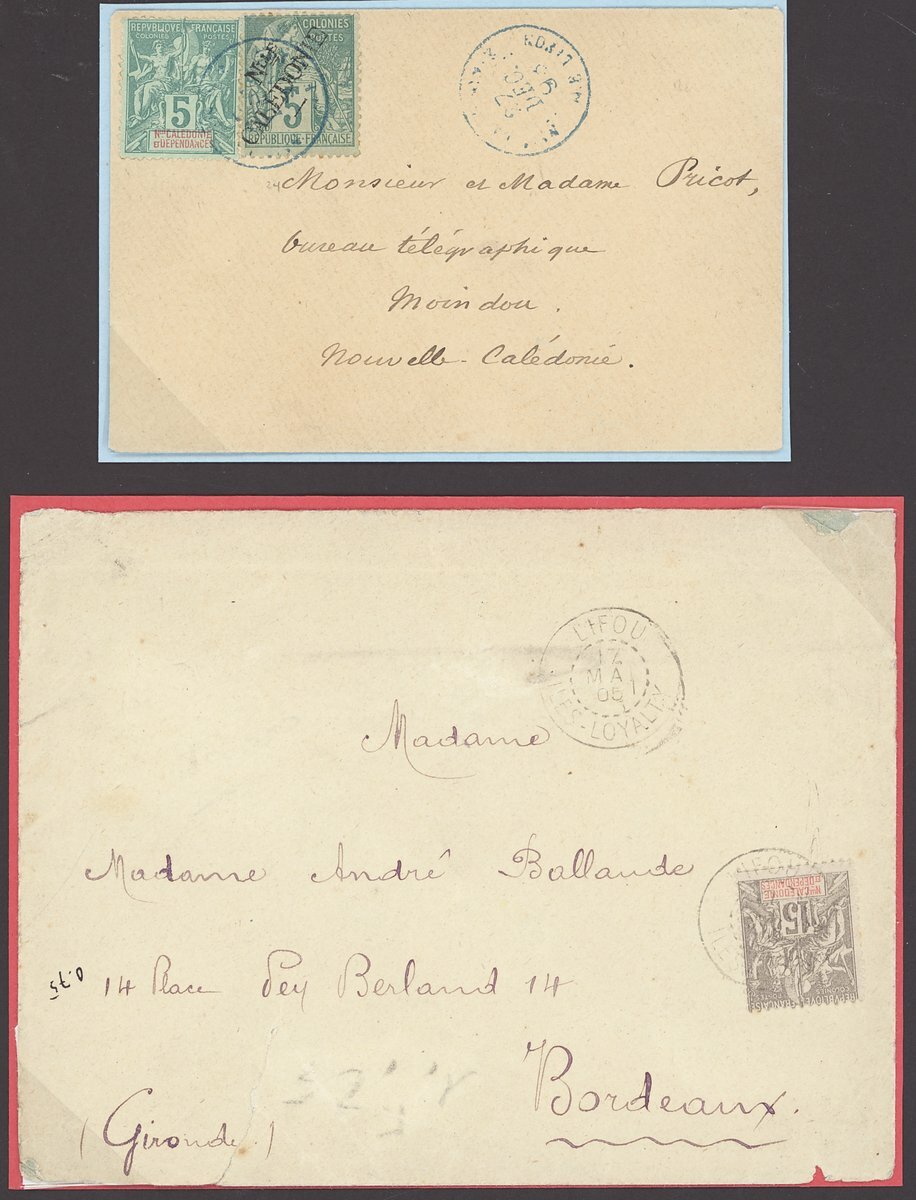 REPVBLIQVE FRANÇAISE
COLONIES POSTES
5
Nlle CALÉDONIE
ET DÉPENDANCES
COLONIES
POSTES
Nlle
CALEDONIE
5
REPUBLIQUE FRANÇAISE
DEC
93
Monsieur et Madame Pricot,
bureau télégraphique
Moindou.
Nouvelle-Calédonie.
LIFOU
17
MAI
05
ILES-LOYALTY
Madame
Madame André Ballande
14 Place Pey Berland 14
0.75
Bordeaux.
(Gironde)
LIFOU
Nlle CALÉDONIE
ET DÉPENDANCES
15
COLONIES POSTES
REPVBLIQVE FRANÇAISE